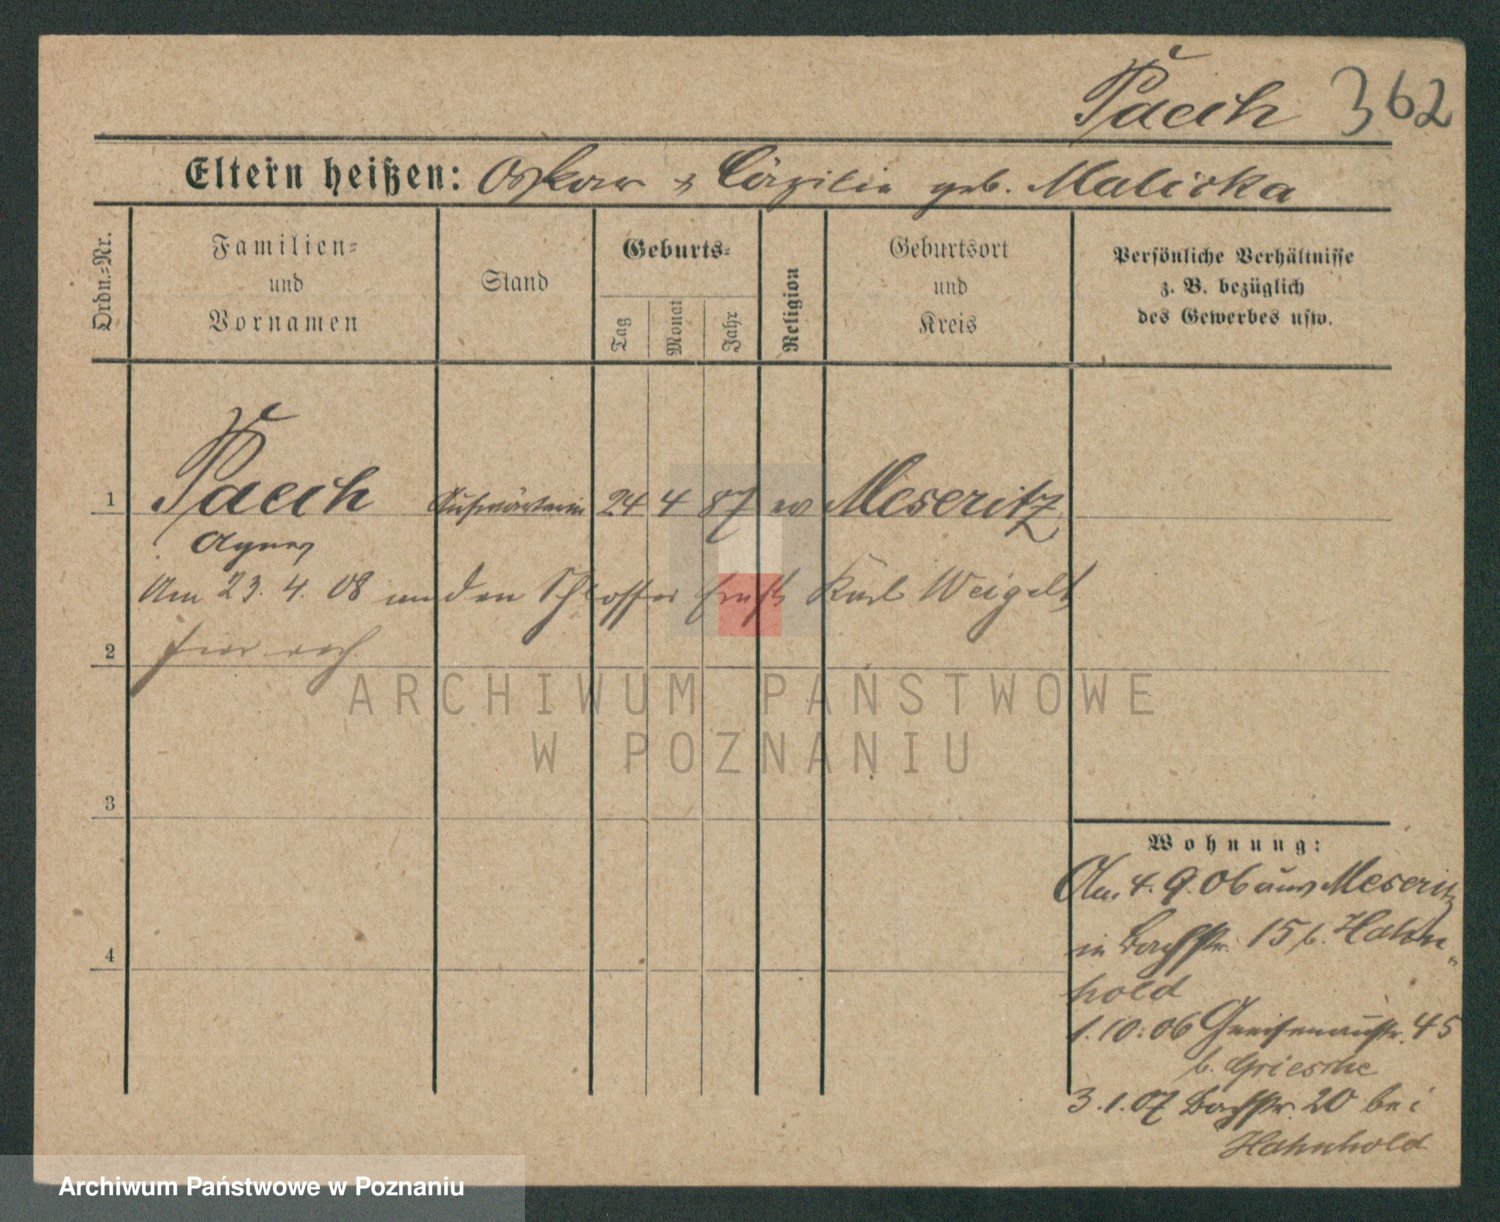 Paech 362
Eltern heißen: Oskar & Cäzilie geb. Malicka
Ordn.-Nr.
Familien-
und
Vornamen
Stand
Geburts-
Tag
Monat
Jahr
Religion
Geburtsort
und
Kreis
Persönliche Verhältnisse
z. B. bezüglich
des Gewerbes usw.
1 Paech Aufwärterin 24 4 87 ev Meseritz
Agnes
Am 23. 4. 08 an den Schlosser Ernst Karl Weigelt
2
ARCHIWUM PAŃSTWOWE
W POZNANIU
3
Wohnung:
Am 4. 9. 06 aus Meseritz
in Bachstr. 15 b. Hahn-
4
hold
1. 10. 06 Gneisenaustr. 45
b. Griesche
3. 1. 07 Bachstr. 20 bei
Hahnhold
Archiwum Państwowe w Poznaniu